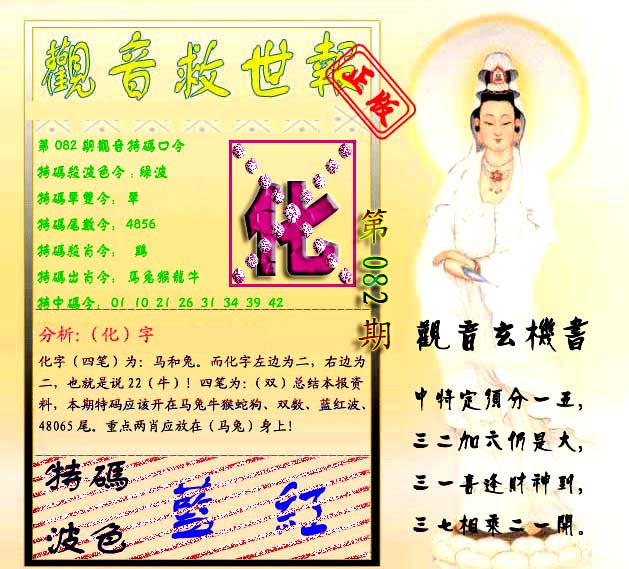 觀音救世報
正版
第 082 期觀音特碼口令
特碼殺波色令：綠波
特碼單雙令： 單
特碼尾數令： 4856
特碼殺肖令： 鷄
特碼出肖令： 馬兔猴龍牛
特中碼令： 01 10 21 26 31 34 39 42
化
第 082 期
分析:（化）字
化字（四笔）为：马和兔。而化字左边为二，右边为
二，也就是说 22（牛）！四笔为：（双）总结本报资
料，本期特码应该开在马兔牛猴蛇狗、双数、蓝红波、
48065 尾。重点两肖应放在（马兔）身上！
特碼
波色
藍 紅
觀音玄機書
中特定須分一五，
三二加六仍是大，
三一喜逢財神到，
三七相乘二一開。